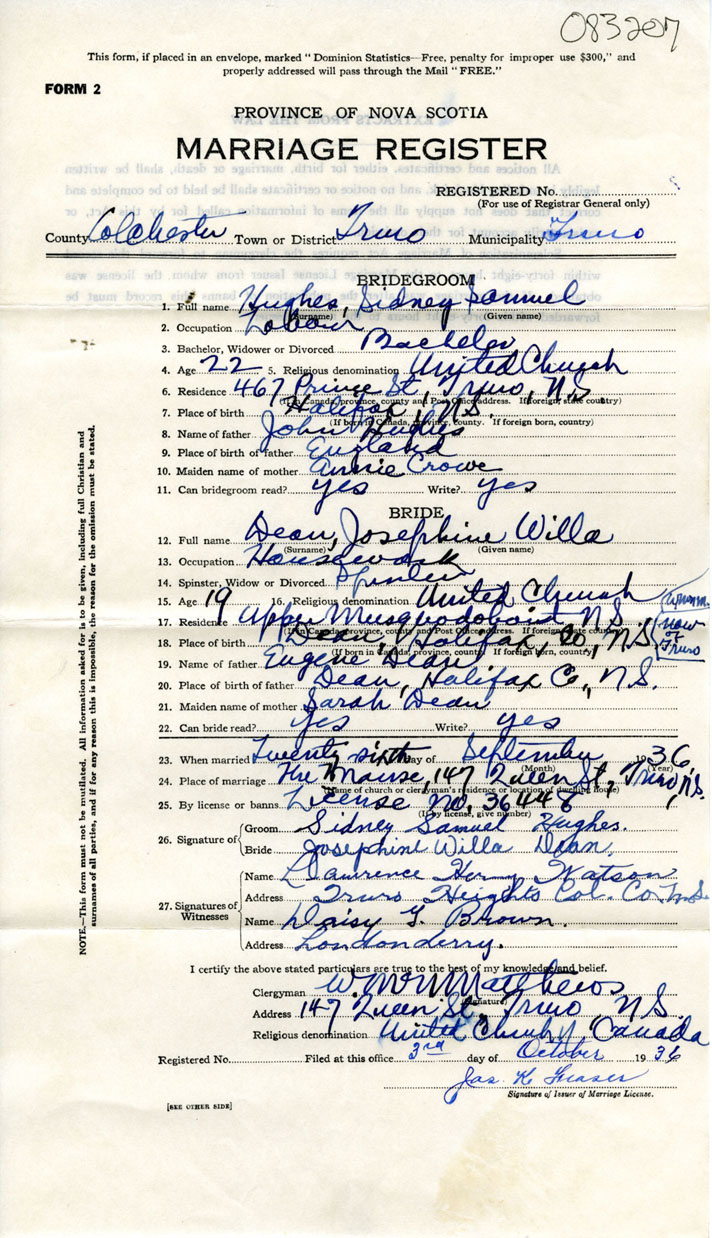 083207
This form, if placed in an envelope, marked "Dominion Statistics—Free, penalty for improper use $300," and
properly addressed will pass through the Mail "FREE."
FORM 2
PROVINCE OF NOVA SCOTIA
MARRIAGE REGISTER
REGISTERED No.
(For use of Registrar General only)
County Colchester Town or District Truro Municipality Truro
BRIDEGROOM
1. Full name Hughes, Sidney Samuel
(Surname) (Given name)
2. Occupation Labour
3. Bachelor, Widower or Divorced Bachelor
4. Age 22 5. Religious denomination United Church
6. Residence 467 Prince St, Truro, N.S
(If in Canada, province, county and Post Office address. If foreign, state country)
7. Place of birth Halifax, N.S.
(If born in Canada, province, county. If foreign born, country)
8. Name of father John Hughes
9. Place of birth of father England
10. Maiden name of mother Annie Crowe
11. Can bridegroom read? yes Write? yes
BRIDE
12. Full name Dean, Josephine Willa
(Surname) (Given name)
13. Occupation Housework
14. Spinster, Widow or Divorced Spinster
15. Age 19 16. Religious denomination United Church
17. Residence Upper Musquodoboit N.S. now of Truro
(If in Canada, province, county and Post Office address. If foreign, state country)
18. Place of birth Dean, Halifax, Co, N.S.
(If born in Canada, province, county. If foreign born, country)
19. Name of father Eugene Dean
20. Place of birth of father Dean, Halifax Co., N.S.
21. Maiden name of mother Sarah Dean
22. Can bride read? yes Write? yes
23. When married Twenty sixth day of September 1936,
(Month) (Year)
24. Place of marriage The Manse, 147 Queen St, Truro, N.S.
(Name of church or clergyman's residence or location of dwelling house)
25. By license or banns License no. 36448
(If by license, give number)
26. Signature of Groom Sidney Samuel Hughes.
Bride Josephine Willa Dean.
27. Signatures of Witnesses
Name Lawrence Henry Watson
Address Truro Heights Col. Co. N.S.
Name Daisy G. Brown.
Address Londonderry.
I certify the above stated particulars are true to the best of my knowledge and belief.
Clergyman W. M. Matthews
(Signature)
Address 147 Queen St, Truro N.S.
Religious denomination United Church, Canada
Registered No. Filed at this office 3rd day of October 1936
Jas. K. Fraser
Signature of Issuer of Marriage License.
[SEE OTHER SIDE]
NOTE.—This form must not be mutilated. All information asked for is to be given, including full Christian and
surnames of all parties, and if for any reason this is impossible, the reason for the omission must be stated.